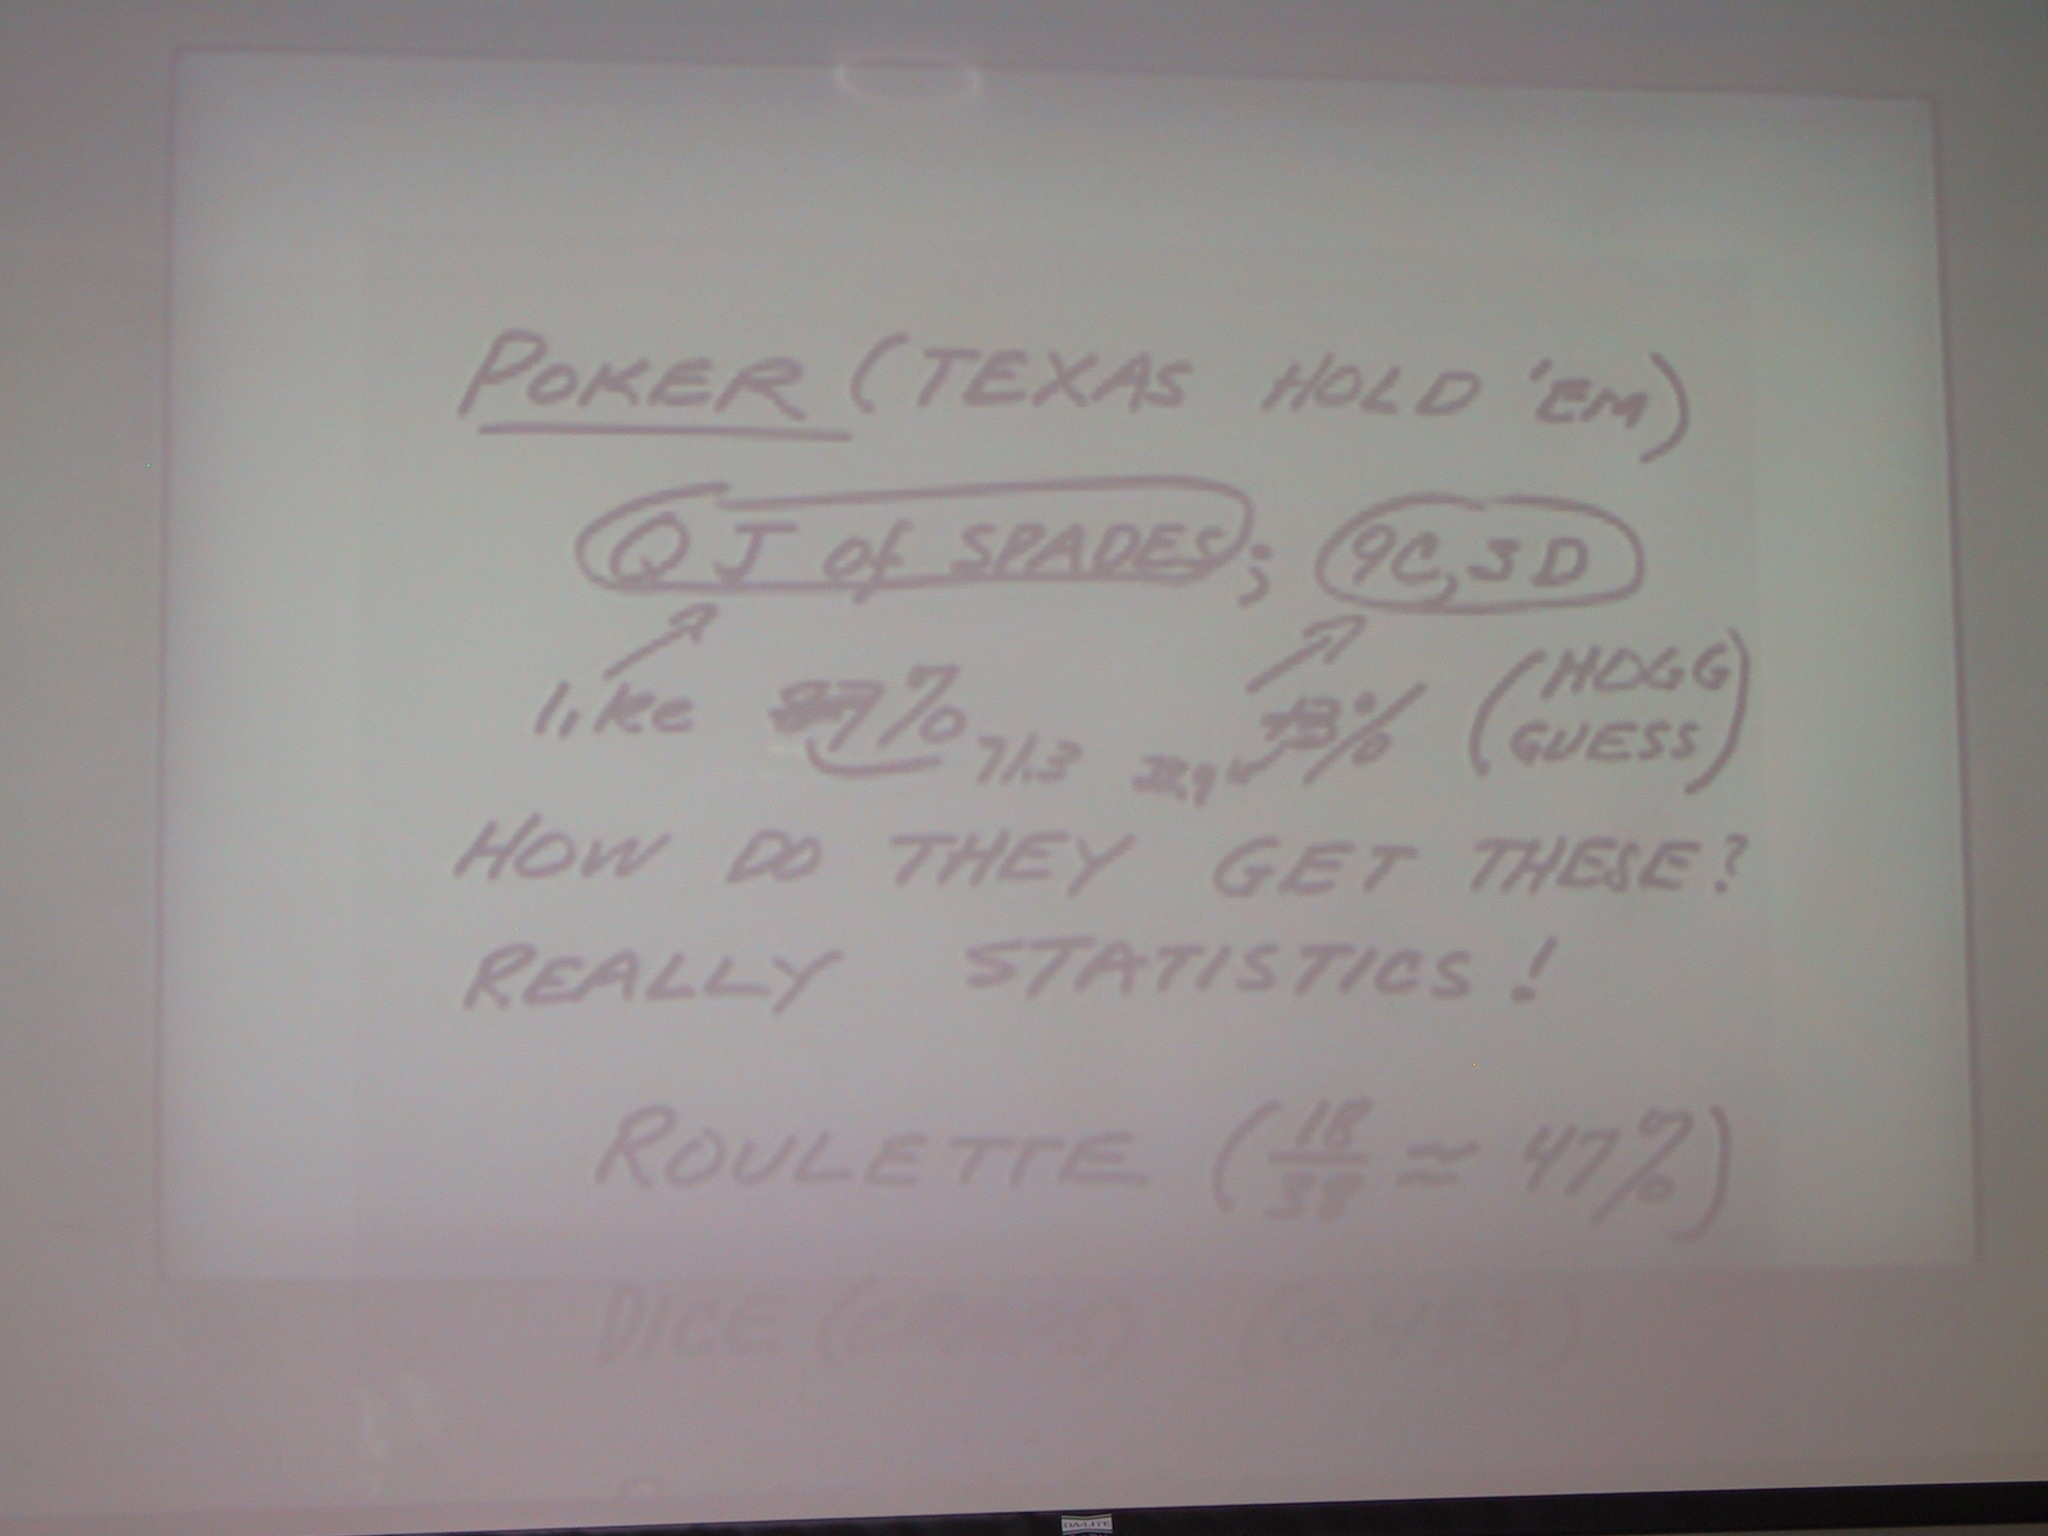 POKER (TEXAS HOLD 'EM)
QJ of SPADES; 9C, 3D
like 87% 71.3 13% (HOGG GUESS)
HOW DO THEY GET THESE?
REALLY STATISTICS!
ROULETTE (18/38 ≈ 47%)
DICE (CRAPS) (0.493)
DA-LITE